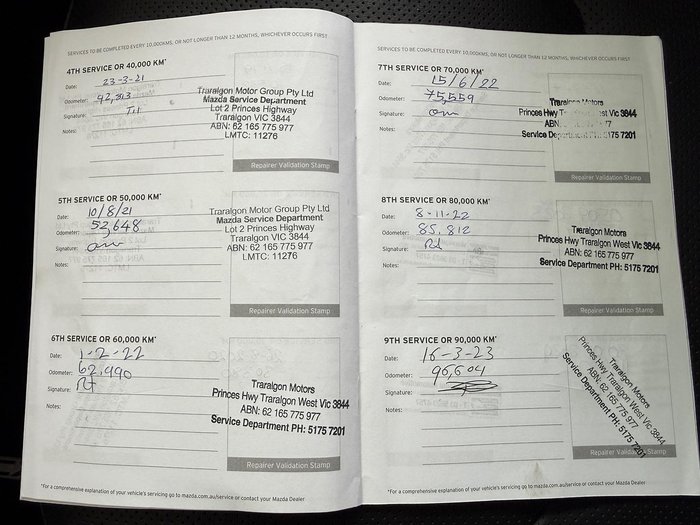 SERVICES TO BE COMPLETED EVERY 10,000KMS, OR NOT LONGER THAN 12 MONTHS, WHICHEVER OCCURS FIRST
4TH SERVICE OR 40,000 KM*
Date: 23-3-21
Odometer: 42,313
Signature:
Notes:
Traralgon Motor Group Pty Ltd
Mazda Service Department
Lot 2 Princes Highway
Traralgon VIC 3844
ABN: 62 165 775 977
LMTC: 11276
Repairer Validation Stamp
5TH SERVICE OR 50,000 KM*
Date: 10/8/21
Odometer: 52,648
Signature:
Notes:
Traralgon Motor Group Pty Ltd
Mazda Service Department
Lot 2 Princes Highway
Traralgon VIC 3844
ABN: 62 165 775 977
LMTC: 11276
Repairer Validation Stamp
6TH SERVICE OR 60,000 KM*
Date: 1-2-22
Odometer: 62,990
Signature:
Notes:
Traralgon Motors
Princes Hwy Traralgon West Vic 3844
ABN: 62 165 775 977
Service Department PH: 5175 7201
Repairer Validation Stamp
*For a comprehensive explanation of your vehicle's servicing go to mazda.com.au/service or contact your Mazda Dealer
SERVICES TO BE COMPLETED EVERY 10,000KMS, OR NOT LONGER THAN 12 MONTHS, WHICHEVER OCCURS FIRST
7TH SERVICE OR 70,000 KM*
Date: 15/6/22
Odometer: 75,559
Signature:
Notes:
Traralgon Motors
Princes Hwy Vic 3844
ABN:
Service 5175 7201
Repairer Validation Stamp
8TH SERVICE OR 80,000 KM*
Date: 8-11-22
Odometer: 85,812
Signature:
Notes:
Traralgon Motors
Princes Hwy Traralgon West Vic 3844
ABN: 62 165 775 977
Service Department PH: 5175 7201
Repairer Validation Stamp
9TH SERVICE OR 90,000 KM*
Date: 16-3-23
Odometer: 96,604
Signature:
Notes:
Traralgon Motors
Princes Hwy Traralgon West Vic 3844
ABN: 62 165 775 977
Service Department PH: 5175 7201
Repairer Validation Stamp
*For a comprehensive explanation of your vehicle's servicing go to mazda.com.au/service or contact your Mazda Dealer